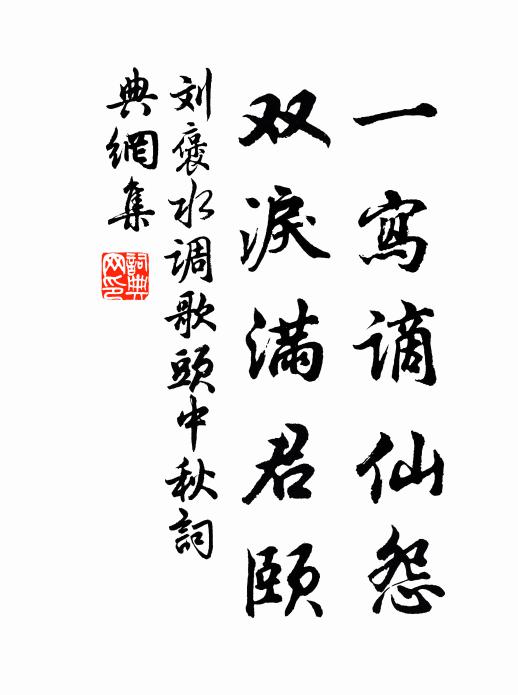 一寫謫仙怨
双淚满君頤
刘褒水调歌頭中秋詞
典網集
詞典网印